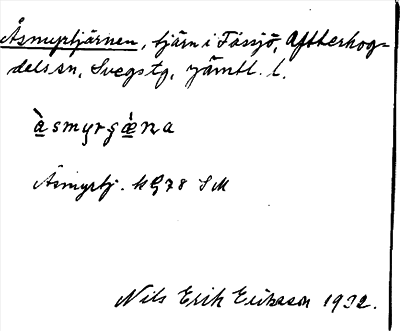 Åsmyrtjärnen, tjärn i Fåssjö, Ytterhog-
dals sn, Svegs tg, Jämtl. l.
àsmyrgæ̀na
Åsmyrtj. KG 78 SM
Nils Erik Eriksson 1932.